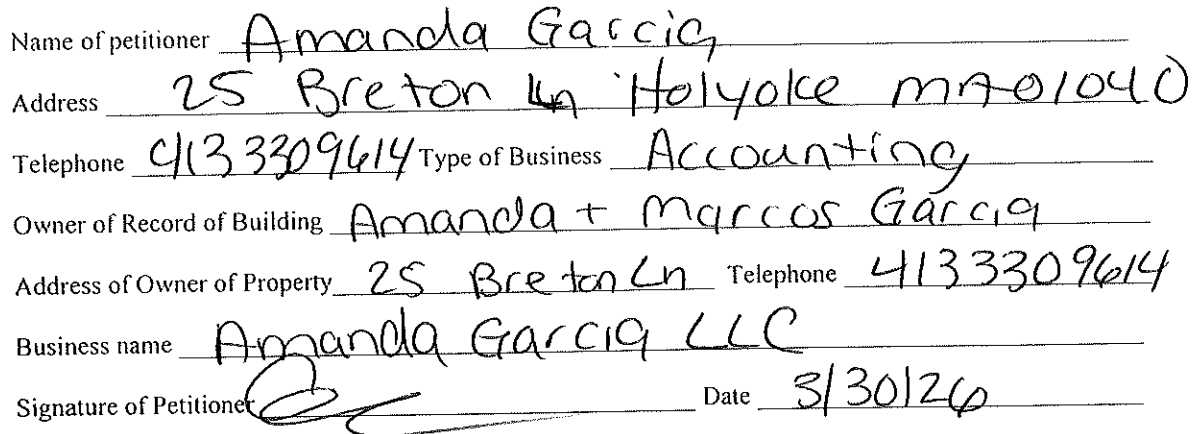 Name of petitioner Amanda Garcia
Address 25 Breton Ln Holyoke MA 01040
Telephone 4133309614 Type of Business Accounting
Owner of Record of Building Amanda + Marcos Garcia
Address of Owner of Property 25 Breton Ln Telephone 4133309614
Business name Amanda Garcia LLC
Signature of Petitioner Date 3/30/26